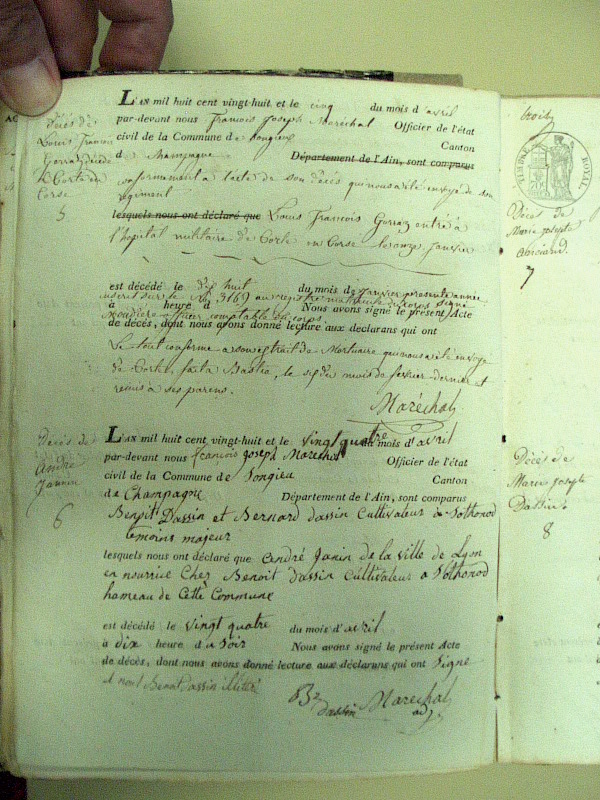 Décès de
Louis Francois
Gorraz décédé
à Corte en
Corse
5
L'AN mil huit cent vingt-huit et le cinq du mois d'avril
par-devant nous François Joseph Maréchal Officier de l'état
civil de la Commune de Songieu Canton
de Champagne Département de l'Ain, sont comparus
conformement à l'acte de son décès qui nous a été envoyé de son
régiment
lesquels nous ont déclaré que Louis François Gorraz entré à
l'hopital militaire de Corte en Corse le onze Janvier
est décédé le dix huit du mois de Janvier presente année
sur le N° 3169 au registre matricule du corps signé
à heure d Nous avons signé le présent Acte
officier comptable du corps
de décès, dont nous avons donné lecture aux déclarans qui ont
Le tout conforme a son extrait de Mortuaire qui nous a été envoyé
de Corte, fait a Bastia, le six du mois de fevrier dernier et
remis à ses parens.
Maréchal
Décès de
André
Jannin
6
L'AN mil huit cent vingt-huit et le vingt quatre du mois d'avril
par-devant nous françois Joseph Marechal Officier de l'état
civil de la Commune de Songieu Canton
de Champagne Département de l'Ain, sont comparus
Benoit Dassin et Bernard dassin Cultivateur a Sothonod
temoins majeur
lesquels nous ont déclaré que andré Janin de la ville de Lyon
en nourrice Chez Benoit dassin Cultivateur a Sothonod
hameau de Cette Commune
est décédé le vingt quatre du mois d'avril
à dix heure d u Soir Nous avons signé le présent Acte
de décès, dont nous avons donné lecture aux déclarans qui ont Signe
et non Benoit Dassin illitéré
Br dassin Maréchal
adj
TIMBRE ROYAL
Décès de
Marie josephe
7
Décès de
Marie Joseph
Dassin
8